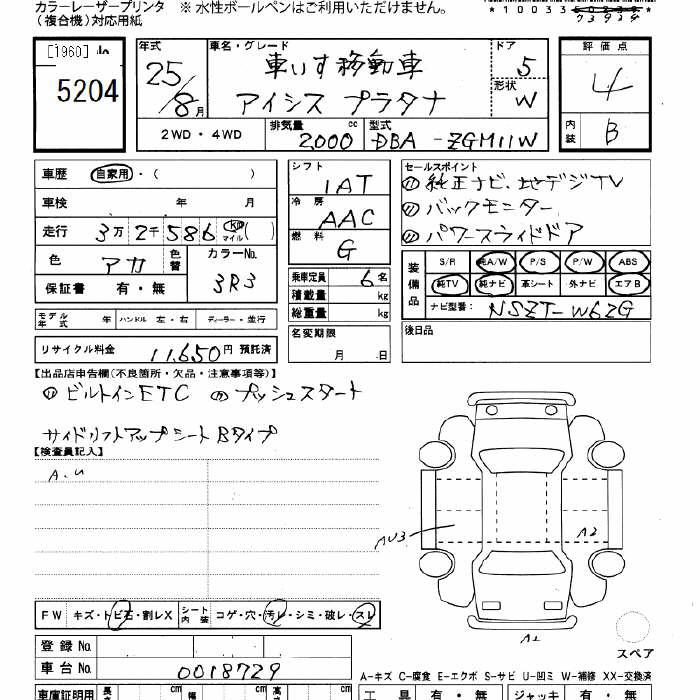 カラーレーザープリンタ ※ 水性ボールペンはご利用いただけません。
(複合機)対応用紙
*10033
73924
[1960]
5204
年式 25/8月
車名・グレード 車いす移動車
アイシス プラタナ
ドア 5
形状 W
評価点 4
内装 B
2WD・4WD
排気量 2,000 cc
型式 DBA-ZGM11W
車歴 自家用・( )
車検 年 月
走行 3万2千586 km マイル( )
色 アカ 色替
カラーNo. 3R3
保証書 有・無
モデル年式 年 ハンドル 左・右 ディーラー・並行
リサイクル料金 11,650円 預託済
シフト 1AT
冷房 AAC
燃料 G
乗車定員 6名
積載量 kg
総重量 kg
名変期限
月 日
セールスポイント
(1)純正ナビ、地デジTV
(1)バックモニター
(1)パワースライドドア
装備品 S/R 純A/W P/S P/W ABS
純TV 純ナビ 革シート 外ナビ エアB
ナビ型番: NSZT-W62G
後日品
【出品店申告欄(不良箇所・欠品・注意事項等)】
(1)ビルトインETC (1)プッシュスタート
サイドリフトアップシート Bタイプ
【検査員記入】
A.U
AU3
A2
A1
スペア
FW キズ・トビ石・割レX シート内装 コゲ・穴・汚レ・シミ・破レ・スレ
登録No.
車台No. 0018729
A-キズ C-腐食 E-エクボ S-サビ U-凹ミ W-補修 XX-交換済
車庫証明用 長 cm 幅 cm 高 cm
工具 有・無 ジャッキ 有・無